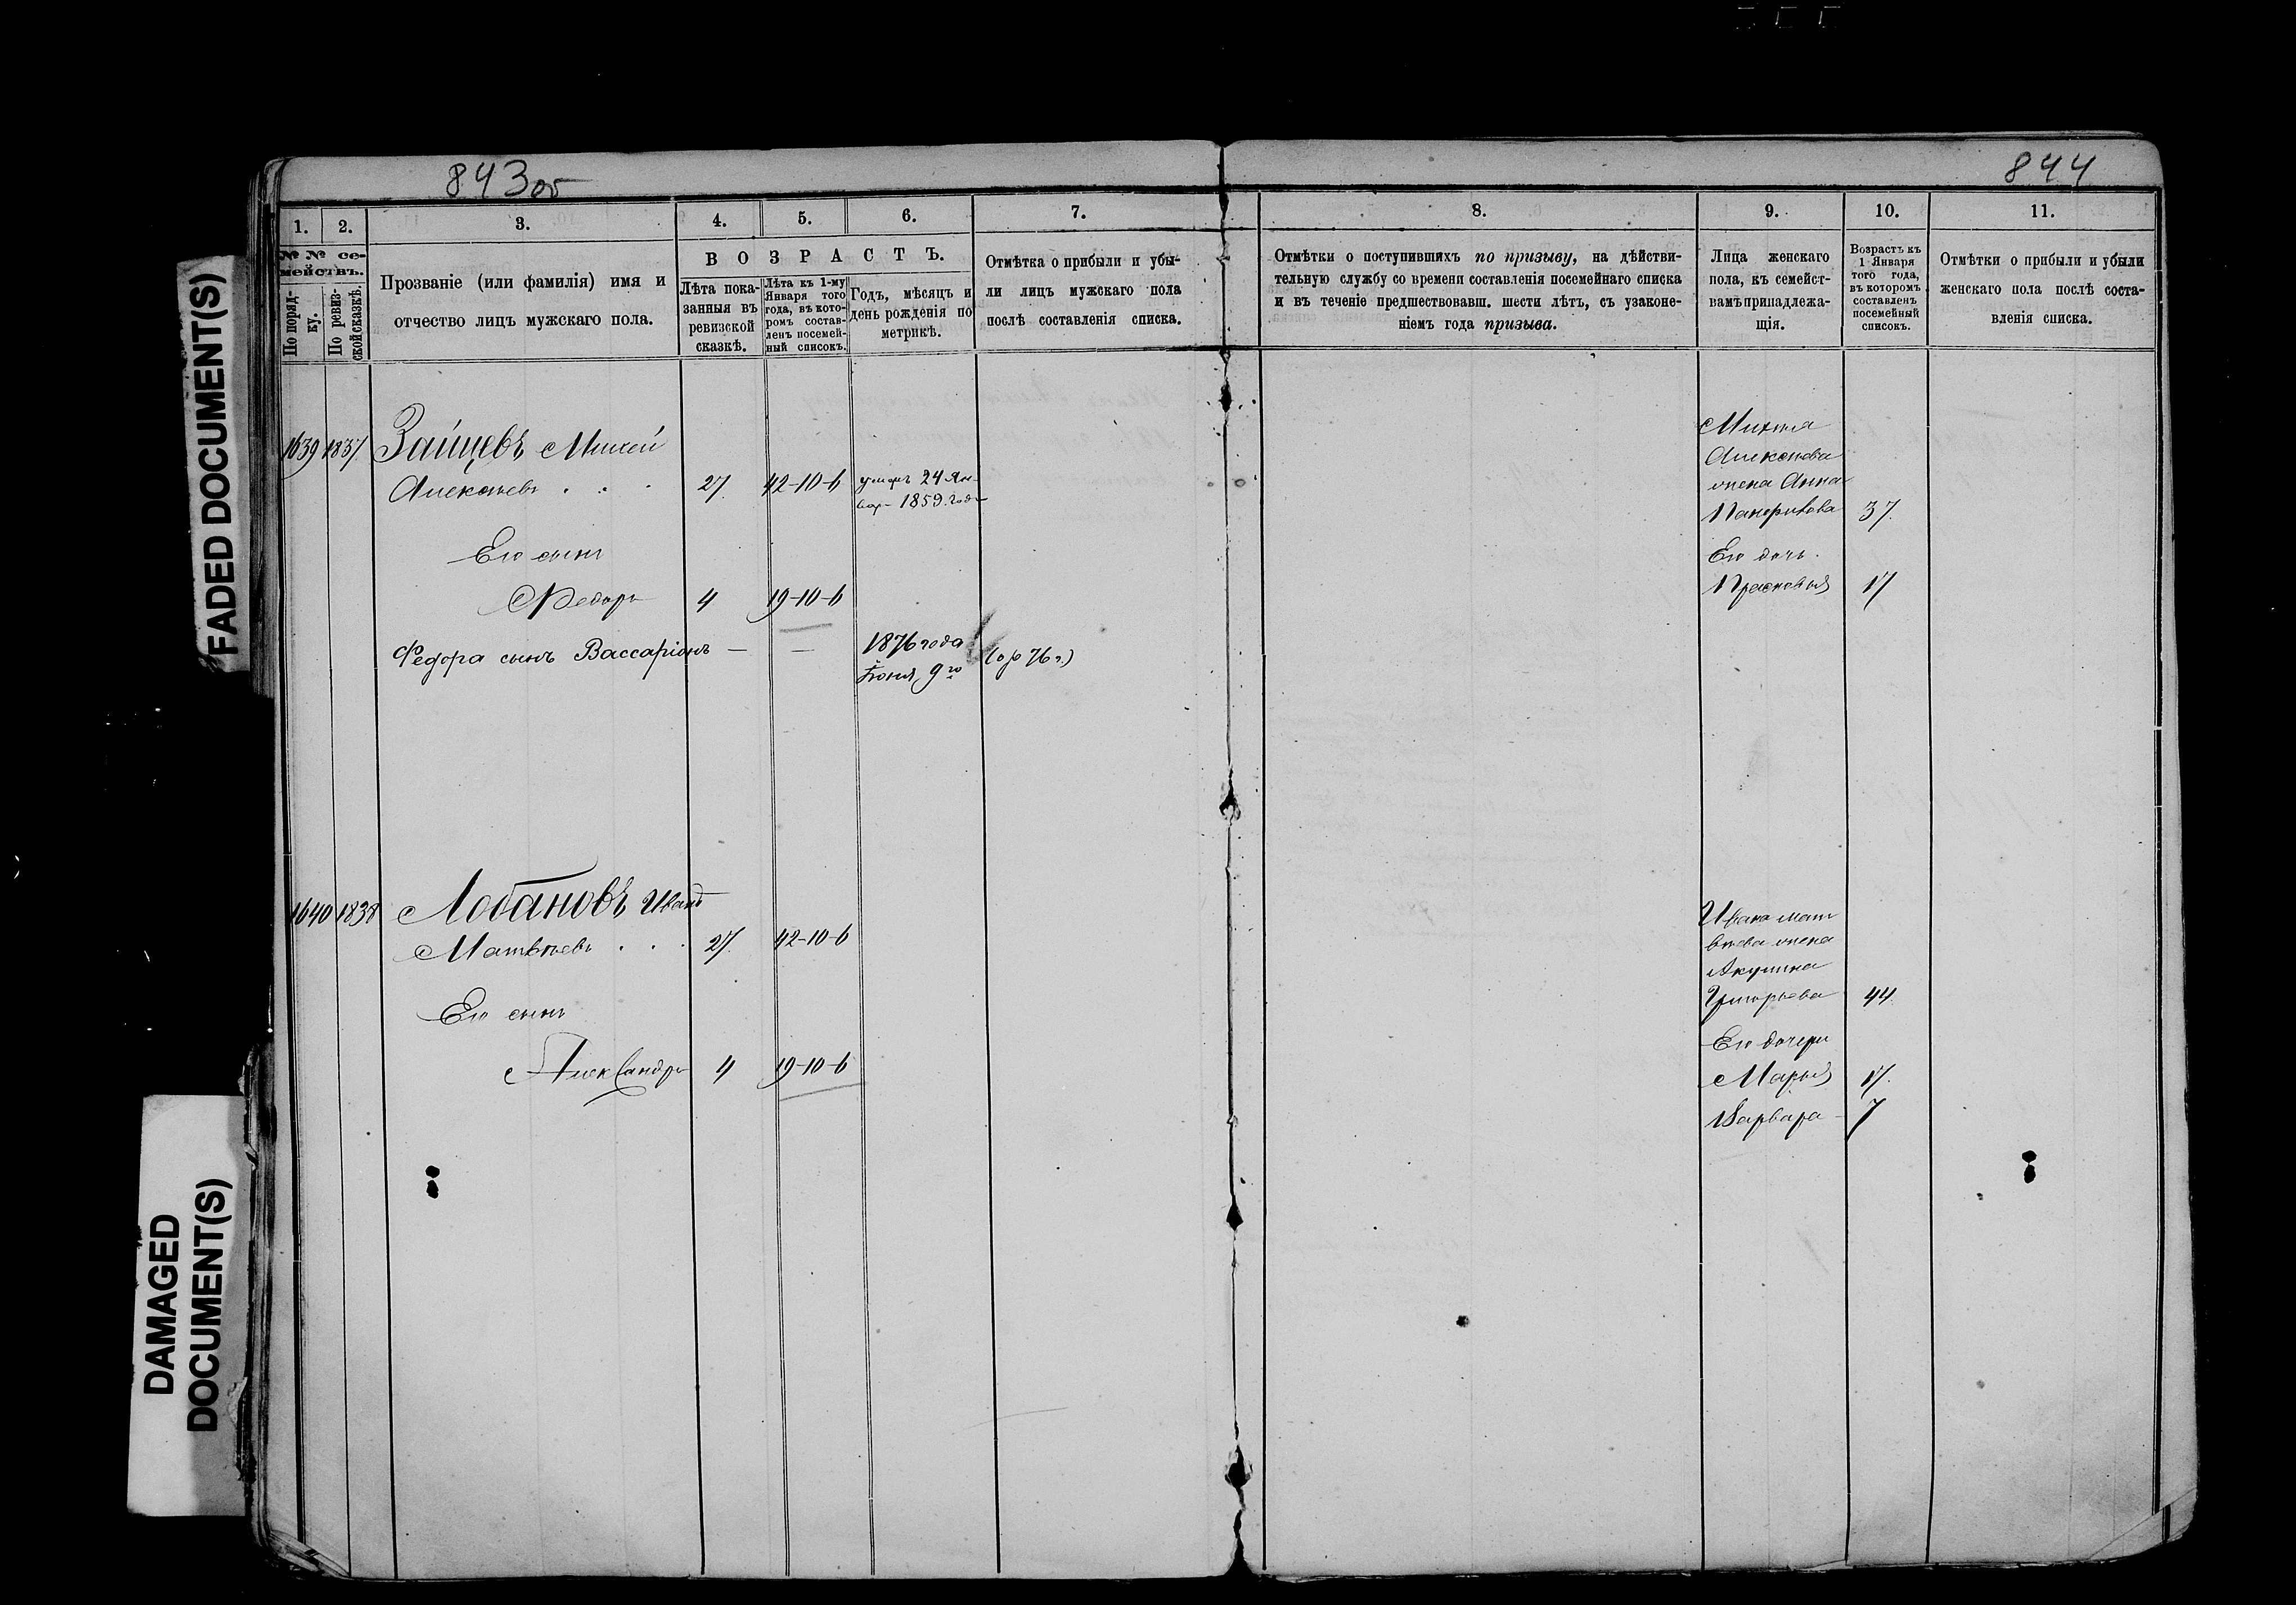 843 об
844
1.
2.
3.
4.
5.
6.
7.
8.
9.
10.
11.
№ № се-
мействъ.
По поряд-
ку.
По ревиз-
ской сказкѣ.
Прозваніе (или фамилія) имя и
отчество лицъ мужскаго пола.
ВОЗРАСТЪ.
Лѣта пока-
занныя въ
ревизской
сказкѣ.
Лѣта къ 1-му
Января того
года, въ кото-
ромъ состав-
ленъ посемей-
ный списокъ.
Годъ, мѣсяцъ и
день рожденія по
метрикѣ.
Отмѣтка о прибыли и убы-
ли лицъ мужскаго пола
послѣ составленія списка.
Отмѣтки о поступившихъ по призыву, на дѣйстви-
тельную службу со времени составленія посемейнаго списка
и въ теченіе предшествовавш. шести лѣтъ, съ узаконе-
ніемъ года призыва.
Лица женскаго
пола, къ семейст-
вамъ принадлежа-
щія.
Возрастъ къ
1 Января
того года,
въ которомъ
составленъ
посемейный
списокъ.
Отмѣтки о прибыли и убыли
женскаго пола послѣ соста-
вленія списка.
1639 1837 Зайцевъ Михей
Алексѣевъ . . . 27 42-10-6 умеръ 24 Ян-
вар- 1859 год-
Его сынъ
Федоръ 4 19-10-6
Федора сынъ Вассаріонъ — — 1876 года
Іюня 9го
(о р 76 г.)
Михея
Алексѣева
жена Анна
Панфилова 37
Его дочь
Прасковья 17
1640 1838 Лобановъ Иванъ
Матвѣевъ . . . 27 42-10-6
Его сынъ
Александръ 4 19-10-6
Ивана Мат
вѣева жена
Акулина
Григорьева 44
Его дочери
Марья 17
Варвара - 7
FADED DOCUMENT(S)
DAMAGED
DOCUMENT(S)